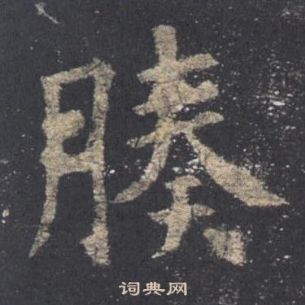 腠
词典网